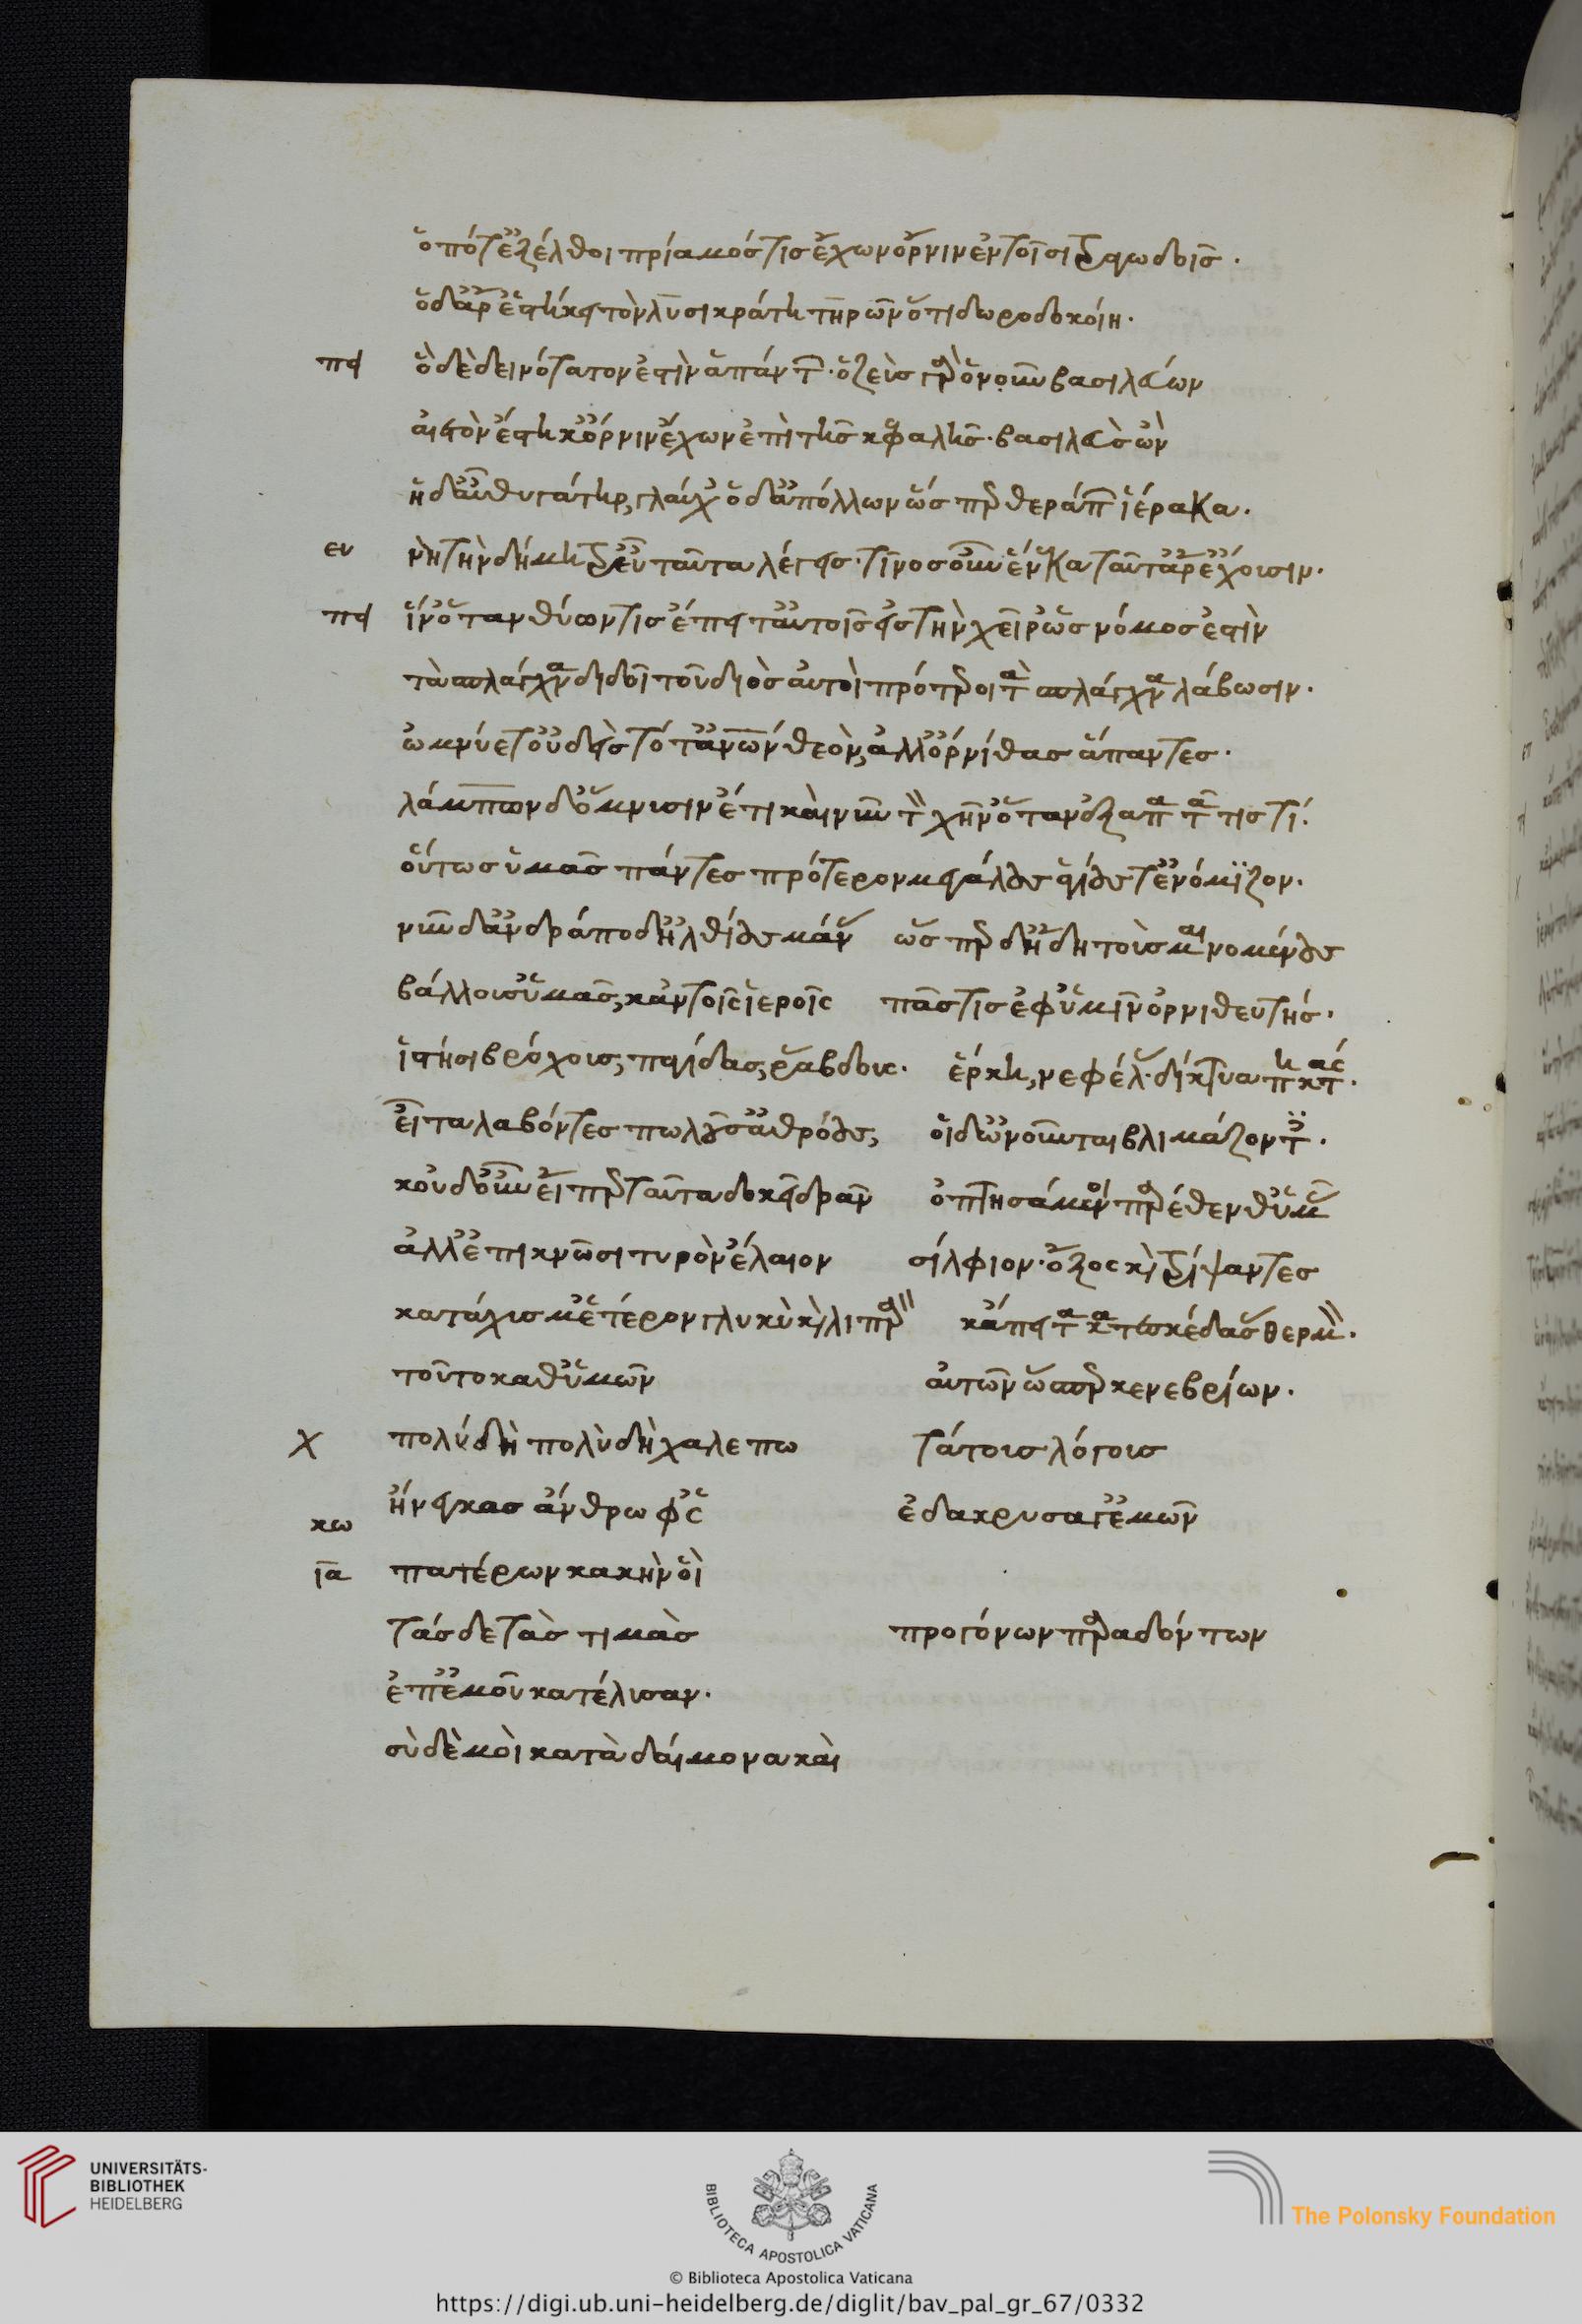 ὁπότ' ἐξέλθοι πρίαμός τις ἔχων ὄρνιν ἐν τοῖσι τραγωδοῖς.
ὁ δ' ἄρ' εἱστήκει τὸν λυσικράτη τηρῶν ὅτι δωροδοκοίη.
πει ὃ δὲ δεινότατον ἐστὶν ἁπάντων. ὁ ζεὺς γὰρ ὁ νῦν βασιλεύων
αἰετὸν ἕστηκ' ὄρνιν ἔχων ἐπὶ τῆς κεφαλῆς. βασιλεὺς ὢν
ἡ δ' αὖ θυγάτηρ, γλαῦχ' ὁ δ' ἀπόλλων ὥσπερ θεράπων ἱέρακα.
ευ νὴ τὴν δήμητρ' εὖ ταῦτα λέγεις. τίνος οὖν ἕνεκα ταῦτ' ἄρ' ἔχουσιν.
πει ἵν' ὅταν θύων τις ἔπειτ' αὐτοῖς εἰς τὴν χεῖρ' ὡς νόμος ἐστὶν
τὰ σπλάγχνα διδοῖ τοῦ διὸς αὐτοὶ πρότεροι τὰ σπλάγχνα λάβωσιν.
ὤμνύετ' οὐδεὶς τότ' ἀνθρώπων θεὸν, ἀλλ' ὄρνιθας ἅπαντες.
λάμπων δ' ὄμνυσιν ἔτι καὶ νῦν τὸν χῆν' ὅταν ἐξαπατᾶ τίς τι.
οὕτως ὑμᾶς πάντες πρότερον μεγάλους ἁγίους τ' ἐνόμιζον.
νῦν δ' ἀνδράποδ' ἠλιθίους μανᾶς ὥσπερ δ' ἤδη τοὺς μαινομένους
βάλλουσ' ὑμᾶς, κἀν τοῖς ἱεροῖς πᾶς τις ἐφ' ὑμῖν ὀρνιθευτής.
ἵστησι βρόχους, παγίδας, ῥάβδους. ἕρκη, νεφέλας. δίκτυα πηκτάς.
εἶτα λαβόντες πωλοῦσ' ἀθρόους, οἱ δ' ὠνοῦνται βλιμάζοντες.
κοὐδ' οὖν εἴπερ ταῦτα δοκεῖ δρᾶν ὀπτησάμενοι παρέθενθ' ὑμᾶς
ἀλλ' ἐπικνῶσι τυρὸν ἔλαιον σίλφιον. ὄξος καὶ τρίψαντες
κατάχυσμ' ἕτερον γλυκὺ καὶ λιπαρὸν κἄπειτα κατεσκέδασαν θερμὸν.
τοῦτο καθ' ὑμῶν αὐτῶν ὥσπερ κενεβρίων.
χ πολὺ δὴ πολὺ δὴ χαλεπω τάτους λόγους
ἤνεγκας ἄνθρωφ' ὡς ἐδάκρυσά γ' ἐμῶν
κω
ῖα πατέρων κάκην οἳ
τάσδε τὰς τιμὰς προγόνων παραδόντων
ἐπ' ἐμοῦ κατέλυσαν.
σὺ δέ μοι κατὰ δαίμονα καὶ
UNIVERSITÄTS-
BIBLIOTHEK
HEIDELBERG
BIBLIOTECA APOSTOLICA VATICANA
The Polonsky Foundation
© Biblioteca Apostolica Vaticana
https://digi.ub.uni-heidelberg.de/diglit/bav_pal_gr_67/0332